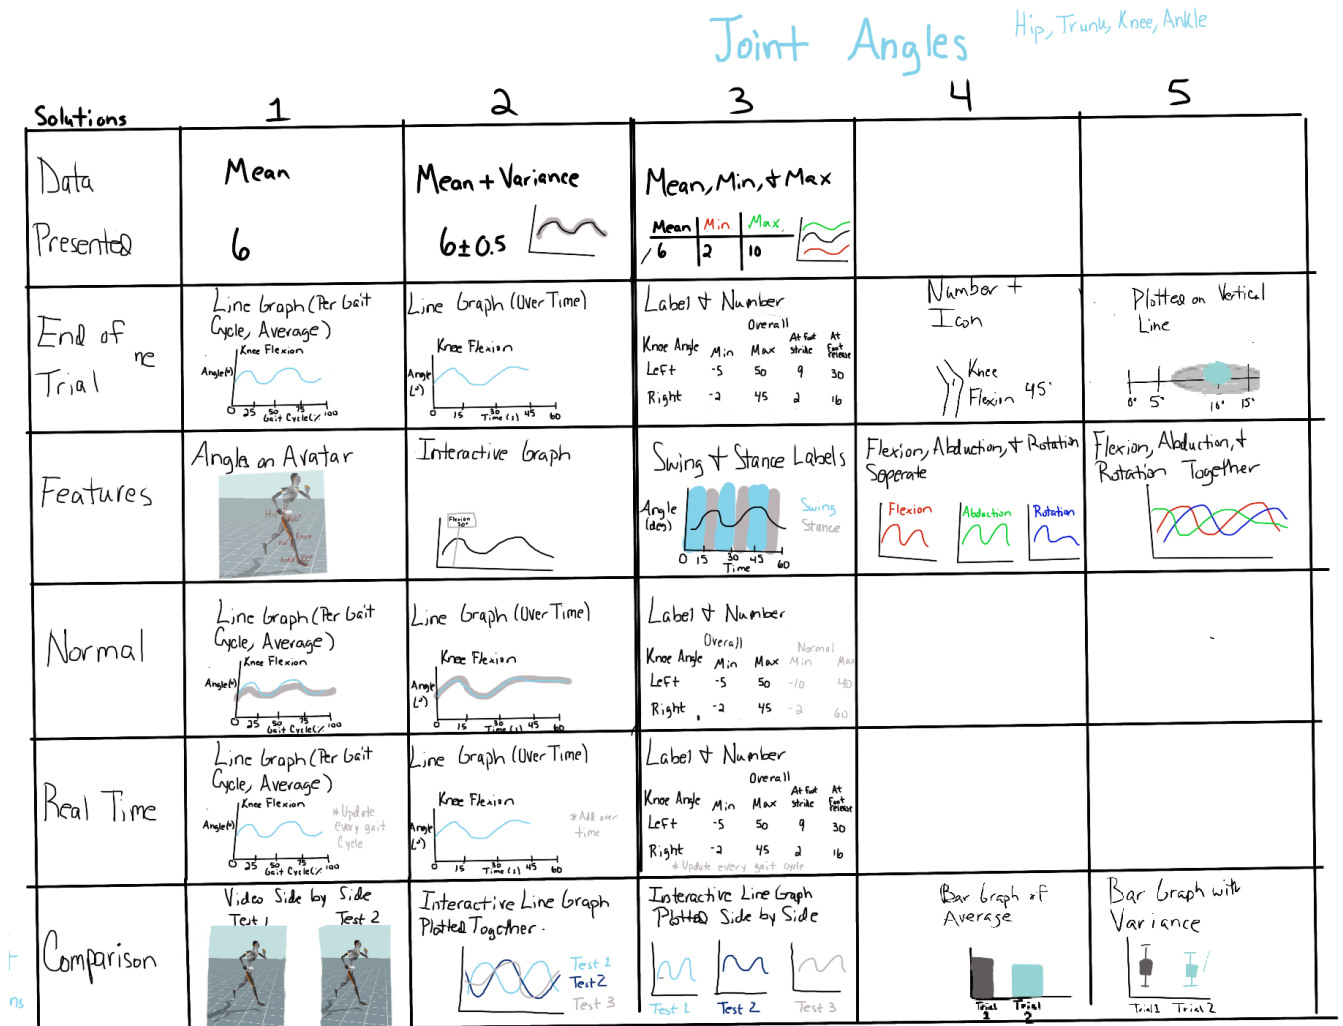 Joint Angles
Hip, Trunk, Knee, Ankle
Solutions 1 2 3 4 5
Data Presented
Mean
6
Mean + Variance
6±0.5
Mean, Min, + Max
Mean Min Max
6 2 10
End of Trial
ne
Line Graph (Per Gait
Cycle, Average)
Knee Flexion
Angle(°)
0 25 50 75 100
Gait Cycle(%
Line Graph (Over Time)
Knee Flexion
Angle
(°)
0 15 30 45 60
Time (s)
Label + Number
Overall
Knee Angle Min Max At foot strike At foot release
Left -5 50 9 30
Right -2 45 2 16
Number +
Icon
Knee
Flexion 45°
Plotted on Vertical
Line
0° 5° 10° 15°
Features
Angles on Avatar
Interactive Graph
Flexion
30°
Swing + Stance Labels
Angle
(deg)
Swing
Stance
0 15 30 45 60
Time
Flexion, Abduction, + Rotation
Seperate
Flexion
Abduction
Rotation
Flexion, Abduction, +
Rotation Together
Normal
Line Graph (Per Gait
Cycle, Average)
Knee Flexion
Angle(°)
0 25 50 75 100
Gait Cycle(%
Line Graph (Over Time)
Knee Flexion
Angle
(°)
0 15 30 45 60
Time (s)
Label + Number
Overall Normal
Knee Angle Min Max Min Max
Left -5 50 -10 40
Right -2 45 -2 60
Real Time
Line Graph (Per Gait
Cycle, Average)
Knee Flexion
Angle(°)
0 25 50 75 100
Gait Cycle(%
*Update
every gait
Cycle
Line Graph (Over Time)
Knee Flexion
Angle
(°)
0 15 30 45 60
Time (s)
*Add over
time
Label + Number
Overall
Knee Angle Min Max At foot strike At foot release
Left -5 50 9 30
Right -2 45 2 16
*Update every gait cycle
Comparison
ns
Video Side by Side
Test 1 Test 2
Interactive Line Graph
Plotted Together.
Test 1
Test 2
Test 3
Interactive Line Graph
Plotted Side by Side
Test 1 Test 2 Test 3
Bar Graph of
Average
Trial 1 Trial 2
Bar Graph with
Variance
Trial 1 Trial 2